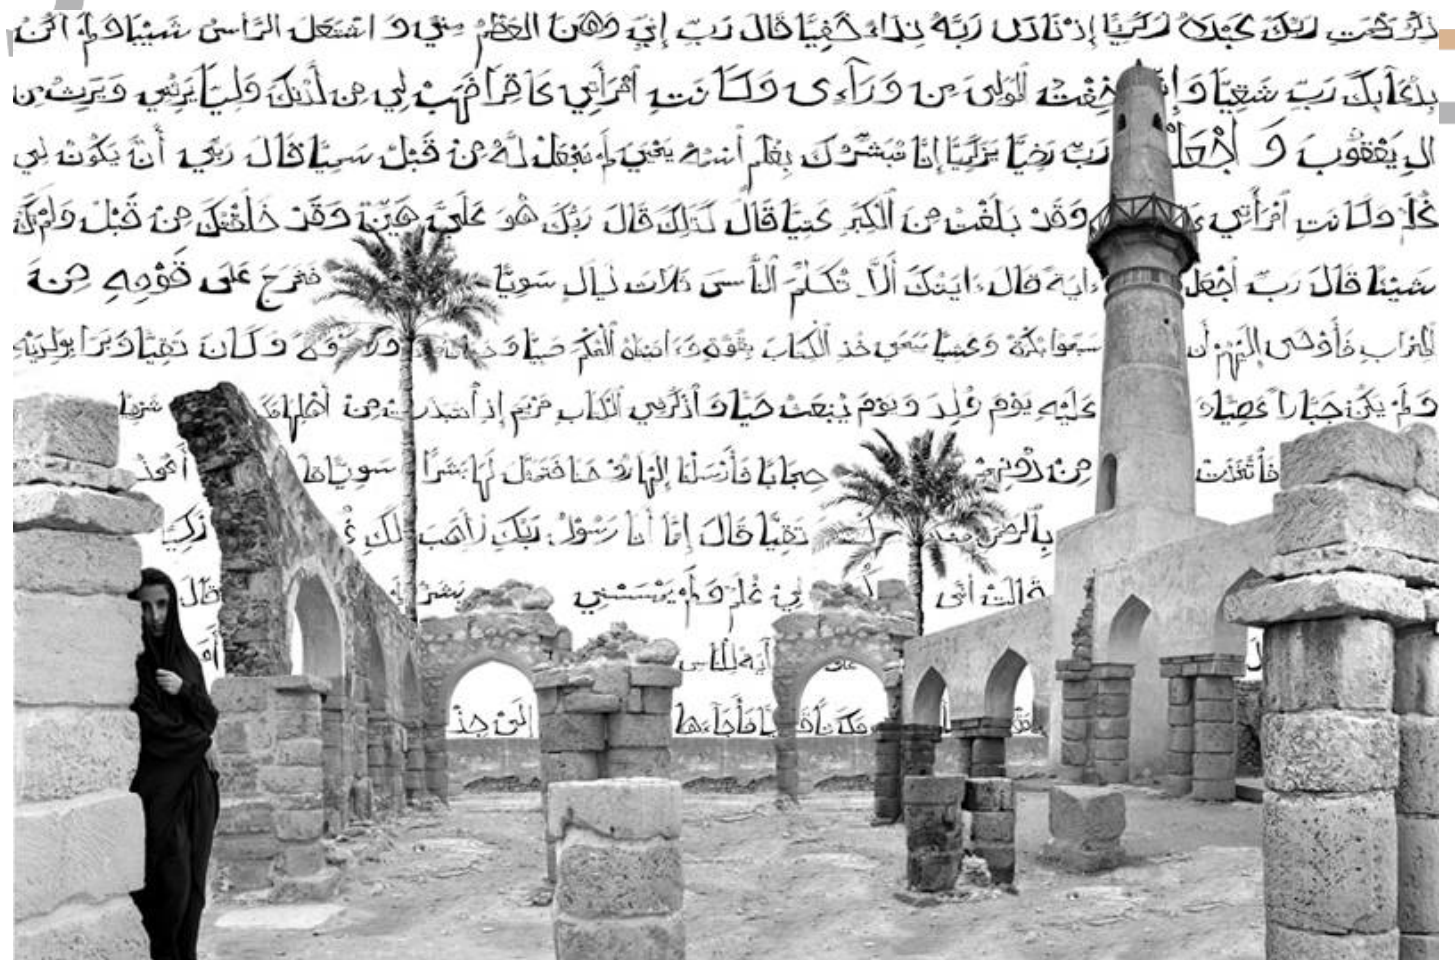 ذِكْرُ رَحْمَتِ رَبِّكَ عَبْدَهُ زَكَرِيَّا إِذْ نَادَىٰ رَبَّهُ نِدَاءً خَفِيًّا قَالَ رَبِّ إِنِّي وَهَنَ الْعَظْمُ مِنِّي وَاشْتَعَلَ الرَّأْسُ شَيْبًا وَلَمْ أَكُنْ
بِدُعَائِكَ رَبِّ شَقِيًّا وَإِنِّي خِفْتُ الْمَوَالِيَ مِن وَرَاءِي وَكَانَتِ امْرَأَتِي عَاقِرًا فَهَبْ لِي مِن لَّدُنكَ وَلِيًّا يَرِثُنِي وَيَرِثُ مِن
ال يَعْقُوبَ وَاجْعَلْهُ رَبِّ رَضِيًّا يَزَكَرِيَّا إِنَّا نُبَشِّرُكَ بِغُلَمٍ اسْمُهُ يَحْيَىٰ لَمْ نَجْعَل لَّهُ مِن قَبْلُ سَمِيًّا قَالَ رَبِّ أَنَّىٰ يَكُونُ لِي
غُلَمٌ وَكَانَتِ امْرَأَتِي وَقَدْ بَلَغْتُ مِنَ الْكِبَرِ عِتِيًّا قَالَ كَذَلِكَ قَالَ رَبُّكَ هُوَ عَلَيَّ هَيِّنٌ وَقَدْ خَلَقْتُكَ مِن قَبْلُ وَلَمْ تَكُ
شَيْئًا قَالَ رَبِّ اجْعَل ءَايَةً قَالَ ءَايَتُكَ أَلَّا تُكَلِّمَ النَّاسَ ثَلَاثَ لَيَالٍ سَوِيًّا فَخَرَجَ عَلَىٰ قَوْمِهِ مِنَ
الْمِحْرَابِ فَأَوْحَىٰ إِلَيْهِمْ أَن سَبِّحُوا بُكْرَةً وَعَشِيًّا يَيَحْيَىٰ خُذِ الْكِتَابَ بِقُوَّةٍ وَءَاتَيْنَاهُ الْحُكْمَ صَبِيًّا وَحَنَانًا وَزَكَوةً وَكَانَ تَقِيًّا وَبَرًّا بِوَلِدَيْهِ
وَلَمْ يَكُن جَبَّارًا عَصِيًّا وَ عَلَيْهِ يَوْمَ وُلِدَ وَيَوْمَ يُبْعَثُ حَيًّا وَاذْكُرْ فِي الْكِتَابِ مَرْيَمَ إِذِ انتَبَذَتْ مِنْ أَهْلِهَا
فَاتَّخَذَتْ مِن دُونِهِمْ حِجَابًا فَأَرْسَلْنَا إِلَيْهَا رُوحَنَا فَتَمَثَّلَ لَهَا بَشَرًا سَوِيًّا أَعُوذُ
بِالرَّحْمَنِ تَقِيًّا قَالَ إِنَّمَا أَنَا رَسُولُ رَبِّكِ لِأَهَبَ لَكِ زَكِيًّا
قَالَتْ أَنَّىٰ لِي غُلَمٌ وَلَمْ يَمْسَسْنِي بَشَرٌ قَالَ
ءَايَةً لِّلنَّاسِ
فَأَجَاءَهَا إِلَىٰ جِذْ